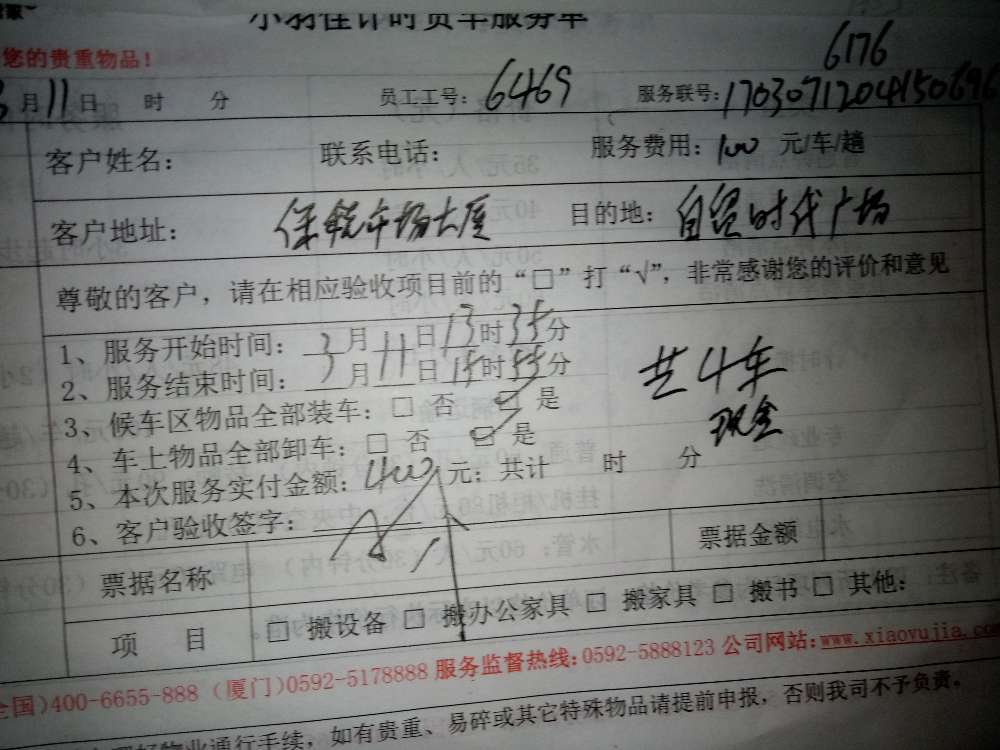 小羽佳计时货车服务单
您的贵重物品!
6176
3月11日 时 分 员工工号: 6469 服务联号: 17030712041506
客户姓名: 联系电话: 服务费用: 100 元/车/趟
客户地址: 保税市场大厦 目的地: 自贸时代广场
尊敬的客户，请在相应验收项目前的“□”打“√”，非常感谢您的评价和意见
1、服务开始时间: 3月11日13时35分
2、服务结束时间: 3月11日15时55分
共4车
3、候车区物品全部装车: □ 否 ☑ 是
现金
4、车上物品全部卸车: □ 否 ☑ 是
5、本次服务实付金额: 400 元; 共计 时 分
6、客户验收签字:
票据名称 票据金额
项 目 □ 搬设备 □ 搬办公家具 □ 搬家具 □ 搬书 □ 其他:
全国)400-6655-888 (厦门)0592-5178888 服务监督热线:0592-5888123 公司网站:www.xiaoyujia.com
物业通行手续，如有贵重、易碎或其它特殊物品请提前申报，否则我司不予负责。